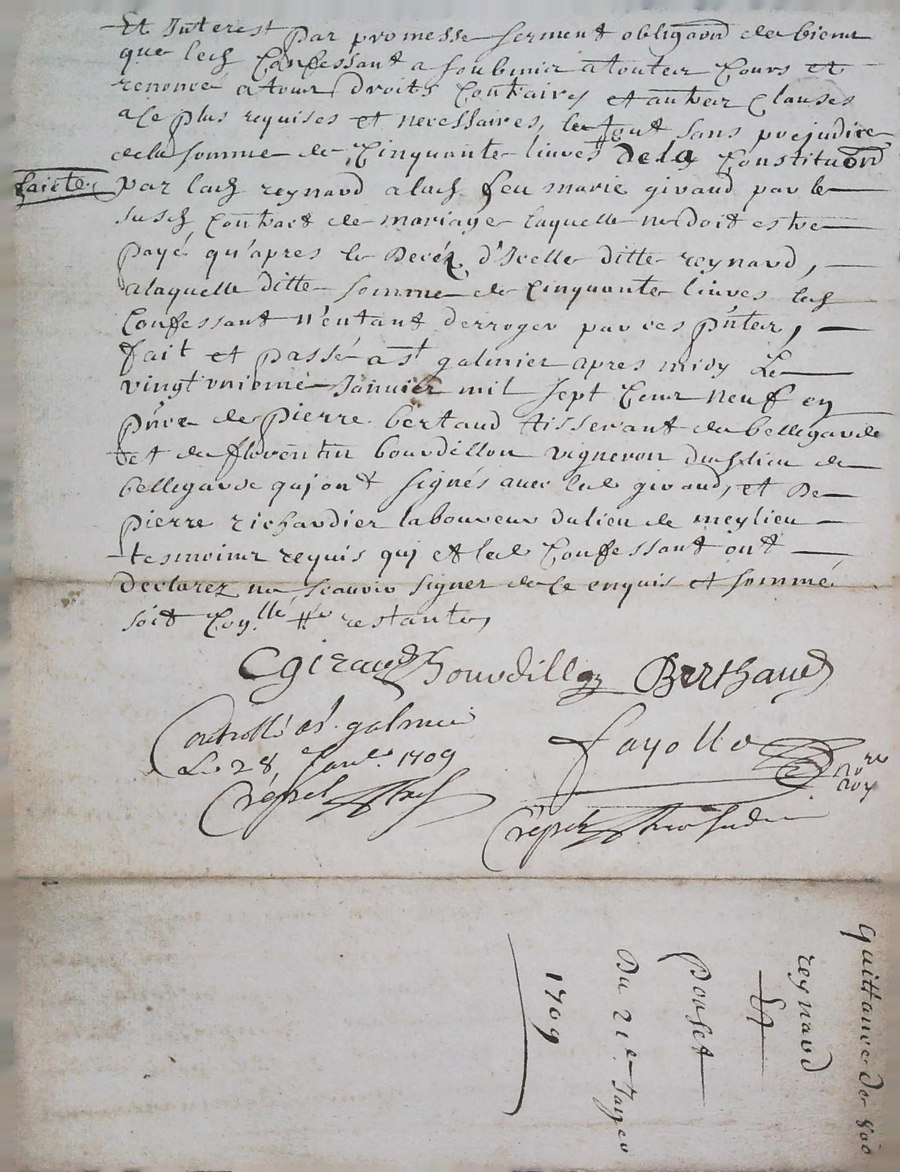 Et Interest par promesse serment obligaōn de bienz
que led Confessant a soubmis a toutes Cours et
renoncé a tous droits Contraires et autres Clauses
a ce plus requises et necessaires, le tout sans prejudice
de la somme de Cinquante livres de la Constituōn
faicte par lad reynaud alad feu marie giraud par le
susd Contract de mariage laquelle ne doit estre
payé qu'apres le decéz d'Icelle ditte reynaud,
a laquelle ditte somme de Cinquante livres led
Confessant n'entant derroger par ces pñtes,
fait et passé a st galmier apres midy Le
vingt unieme Janvier mil sept Cens neuf en
pñce de pierre bertaud tisserant de bellegarde
et de floventin bourdillon vigneron dud lieu de
bellegarde qui ont signés avec lad giraud, et de
pierre richardier laboureur du lieu de meylieu
tesmoins requis qui et led Confessant ont
declarez ne scavoir signer de ce enquis et sommé
soit restante
C giraud Bourdillon Berthaud
Controllé a st galmier
Le 28 Janv. 1709
fayolle no.re roy
Crespet
Crespet
Quittance de
reynaud
Et
pouset
Du 21e Janver
1709